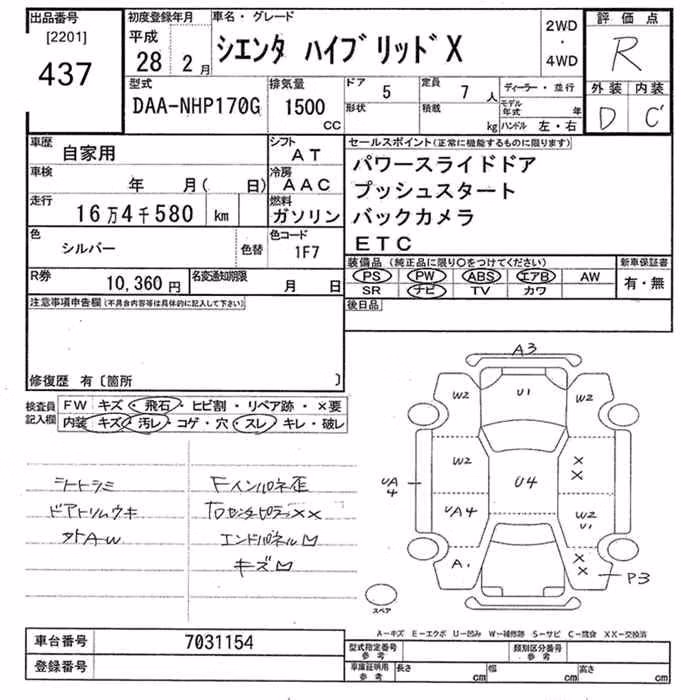 出品番号
[2201]
437
初度登録年月
平成
28年 2月
車名・グレード
シエンタ ハイブリッドX
2WD
・
4WD
評価点
R
外装 内装
D C'
型式
DAA-NHP170G
排気量
1500
CC
ドア 5
形状
定員 7 人
積載 kg
ディーラー・並行
モデル年式 年
ハンドル 左・右
車歴 自家用
シフト AT
車検 年 月( 日)
冷房 AAC
走行 16万4千580 km
燃料 ガソリン
色 シルバー 色替
色コード 1F7
R券 10,360円
名変通知期限 月 日
セールスポイント(正常に機能するものに限ります)
パワースライドドア
プッシュスタート
バックカメラ
ETC
装備品(純正品に限り○をつけてください)
PS PW ABS エアB AW
SR ナビ TV カワ
新車保証書
有・無
後日品
注意事項申告欄(不具合内容等は具体的に記入して下さい)
修復歴 有〔箇所 〕
検査員記入欄
FW キズ・飛石・ヒビ割・リペア跡・×要
内装 キズ・汚レ・コゲ・穴・スレ・キレ・破レ
シートシミ
ドアトリムウキ
外AW
Fインパネ歪
センターピラーXX
エンドパネル凹
キズ凹
A3
W2 U1 W2
W2 XX
UA4 U4
UA4 W2 U1
A1 XX P3
スペア
A-キズ E-エクボ U-凹み W-補修跡 S-サビ C-腐食 XX-交換済
車台番号 7031154
登録番号
型式指定番号 参考
類別区分番号 参考
車庫証明用 参考
長さ cm 幅 cm 高さ cm